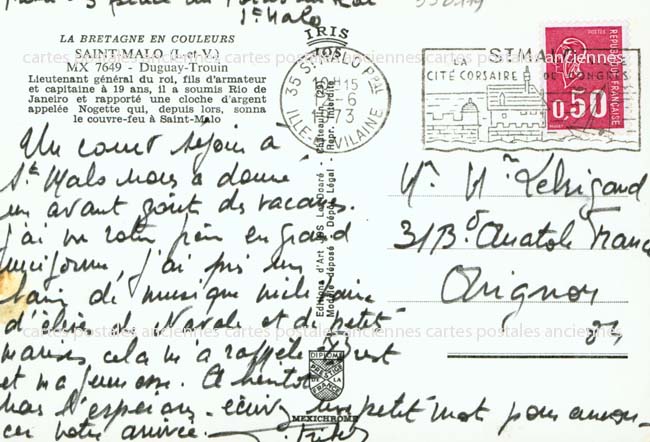 St Malo
LA BRETAGNE EN COULEURS
SAINT-MALO (I.-et-V.)
MX 7649 - Duguay-Trouin
Lieutenant général du roi, fils d'armateur
et capitaine à 19 ans, il a soumis Rio de
Janeiro et rapporté une cloche d'argent
appelée Nogette qui, depuis lors, sonna
le couvre-feu à Saint-Malo
IRIS
35 ST MALO PPAL
15
-6
1973
ILLE & VILAINE
ST MALO
LA
CITÉ CORSAIRE DE CONGRÈS
REPUBLIQUE FRANÇAISE
0,50
Un court séjour à
St Malo nous a donné
un avant goût de vacances.
J'ai vu votre père en grand
uniforme, j'ai pris un
bain de musique militaire
d'église et
cela m'a rappelé Brest
et ma jeunesse. A bientôt
nous l'espérons - écrivez un petit mot pour annon-
cer votre arrivée.
Editions d'Art
Modèle déposé - Dépôt Légal - Repr. Interdite
DIPLOME
PRESTIGE
DE LA
FRANCE
MEXICHROME
Mr Mme
31 Bd Anatole France
Avignon
84
cartes postales anciennes cartes postales anciennes cartes postales anciennes